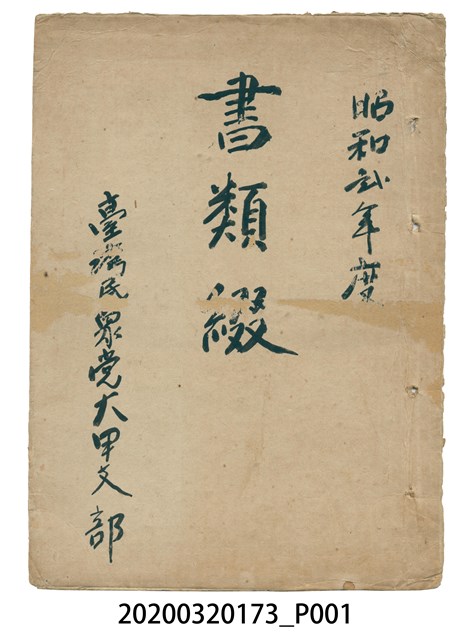 昭和弐年度
書類綴
臺灣民眾党大甲支部
20200320173_P001